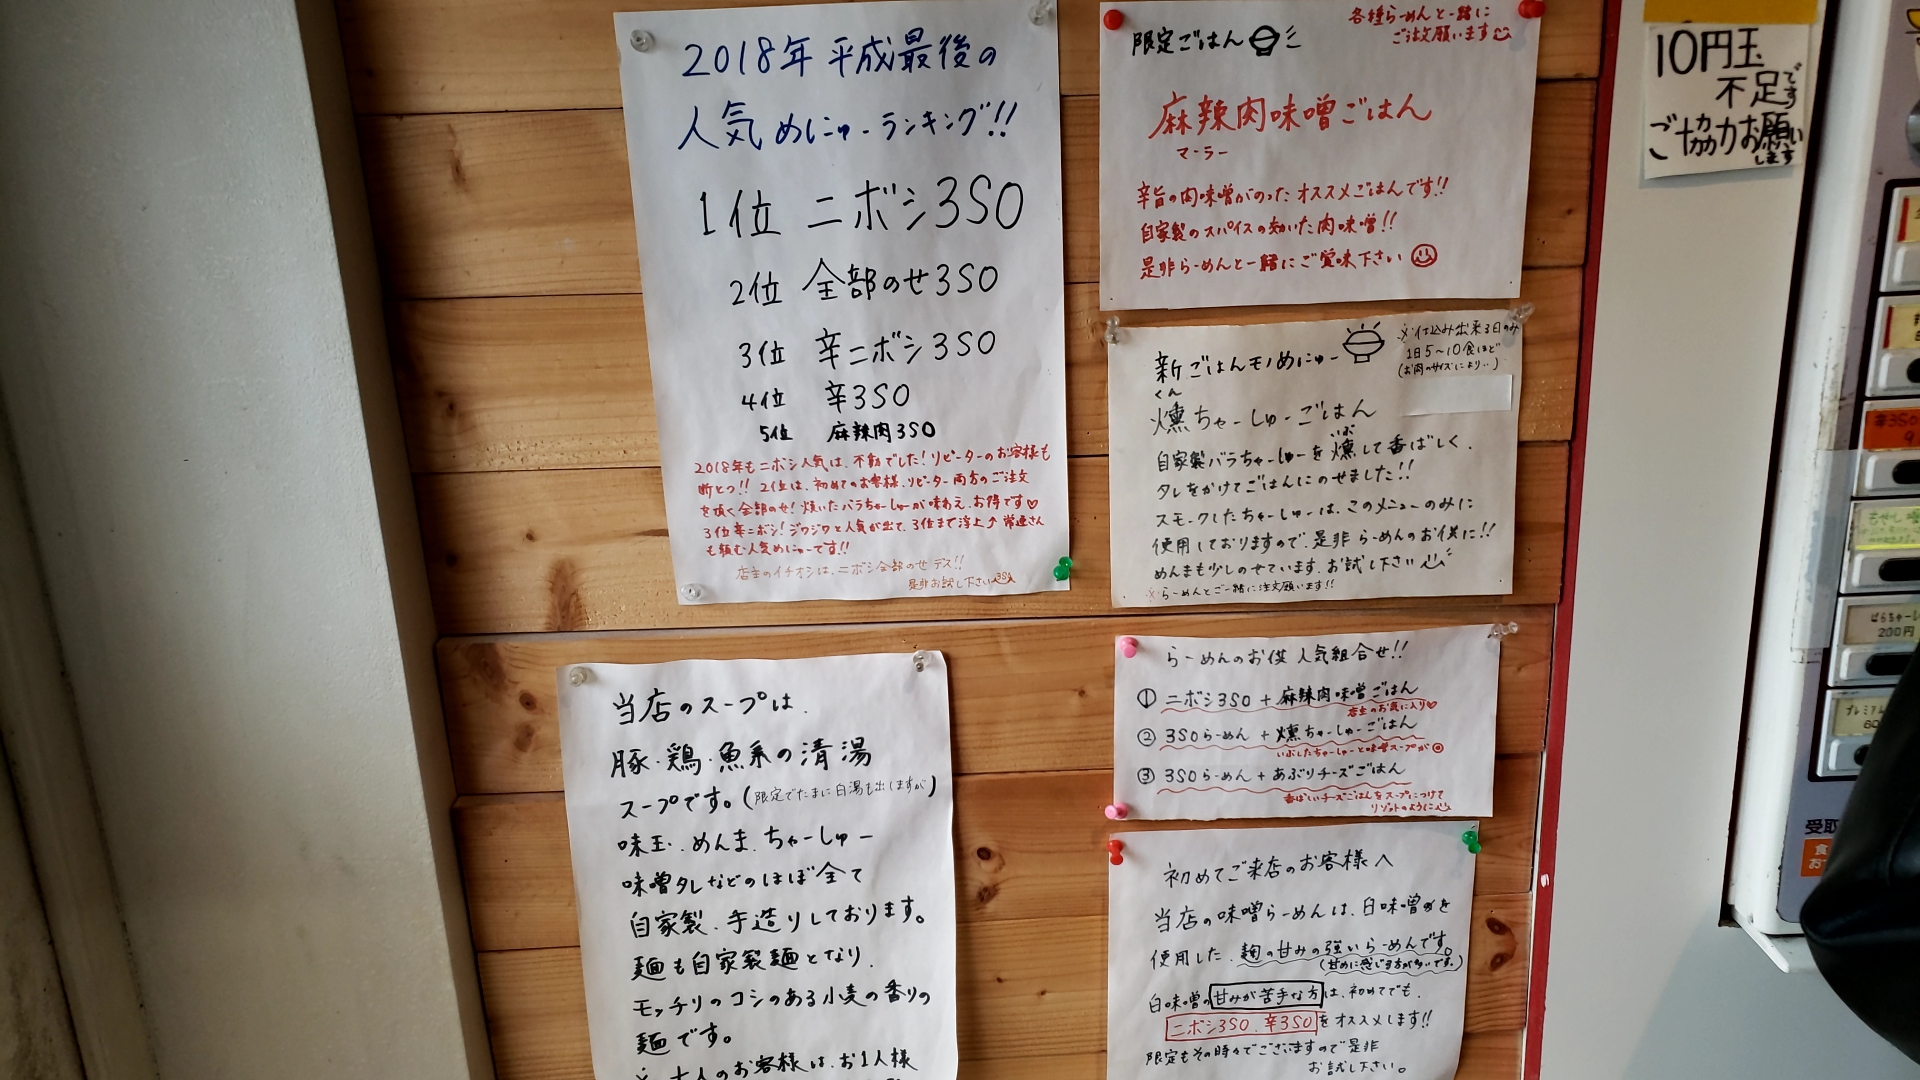 2018年 平成最後の
人気めにゅーランキング!!
1位 ニボシ3SO
2位 全部のせ3SO
3位 辛ニボシ3SO
4位 辛3SO
5位 麻辣肉3SO
2018年もニボシ人気は、不動でした!リピーターのお客様も
断とつ!! 2位は、初めてのお客様、リピーター両方のご注文
を頂く全部のせ!焼いたバラちゃーしゅーが味わえ、お得です♡
3位辛ニボシ!ジワジワと人気が出て、3位まで浮上↗常連さん
も頼む人気めにゅーです!!
店主のイチオシは、ニボシ全部のせデス!!
是非お試し下さい
限定ごはん
各種らーめんと一緒に
ご注文願います
麻辣肉味噌ごはん
マーラー
辛旨の肉味噌がのったオススメごはんです!!
自家製のスパイスの効いた肉味噌!!
是非らーめんと一緒にご賞味下さい
新ごはんモノめにゅー
※仕込み出来る日のみ
1日5〜10食ほど
(お肉のサイズにより..)
くん
燻ちゃーしゅーごはん
いぶ
自家製バラちゃーしゅーを燻して香ばしく、
タレをかけてごはんにのせました!!
スモークしたちゃーしゅーは、このメニューのみに
使用しておりますので、是非らーめんのお供に!!
めんまも少しのせています。お試し下さい
※らーめんとご一緒に注文願います!!
らーめんのお供 人気組合せ!!
① ニボシ3SO + 麻辣肉味噌ごはん
店主のお気に入り♡
② 3SOらーめん + 燻ちゃーしゅーごはん
いぶしたちゃーしゅーと味噌スープが◎
③ 3SOらーめん + あぶりチーズごはん
香ばしいチーズごはんをスープにつけて
リゾットのように
当店のスープは、
豚・鶏・魚系の清湯
スープです。(限定でたまに白湯も出しますが)
味玉、めんま、ちゃーしゅー
味噌タレなどのほぼ全て
自家製、手造りしております。
麺も自家製麺となり、
モッチリのコシのある小麦の香りの
麺です。
※ 大人のお客様は、お1人様
初めてご来店のお客様へ
当店の味噌らーめんは、白味噌を
使用した、麹の甘みの強いらーめんです。
(甘めに感じる方が多いです。)
白味噌の甘みが苦手な方は、初めてでも、
ニボシ3SO、辛3SOをオススメします!!
限定もその時々でございますので是非
お試し下さい。
10円玉
不足です
ご協力お願いします
辛3SO
ばらちゃーし
200円
プレミアム
60
受取